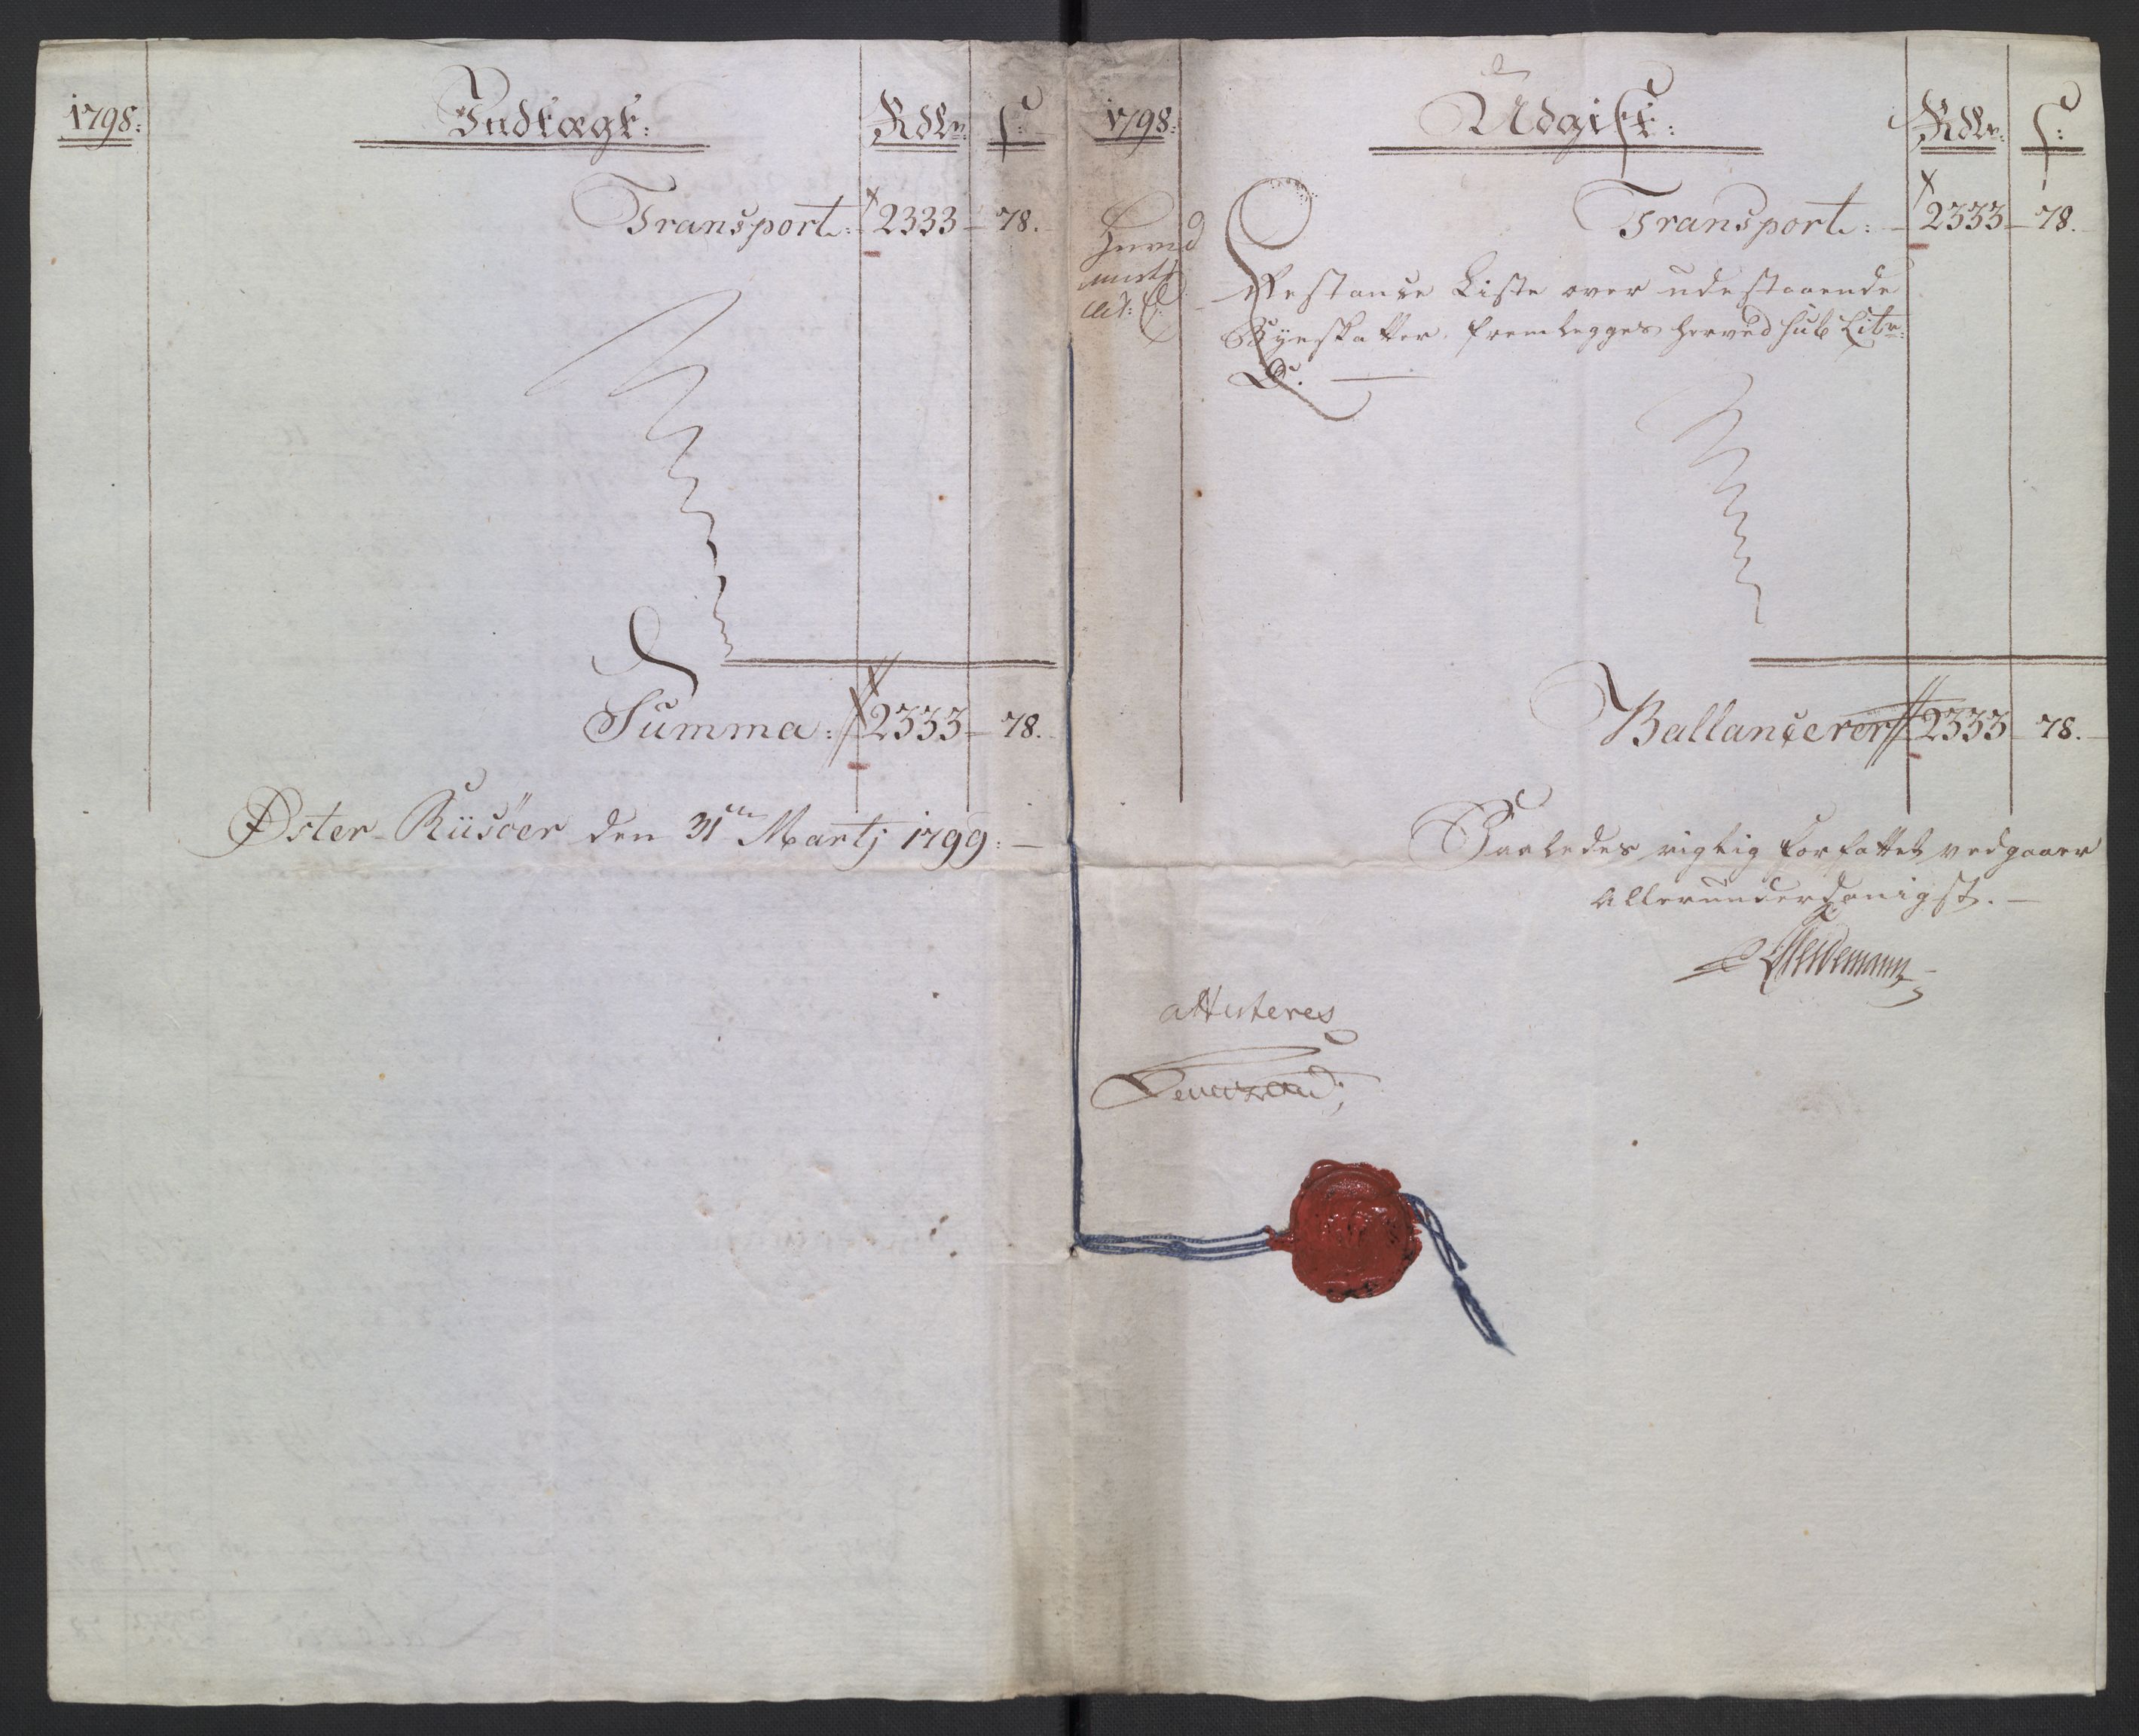 1798: Indtægt: Rdlr: ß:
Transport: 2333 - 78.
Summa: 2333 - 78.
Øster-Riisöer den 31te Martj 1799: -
1798: Udgift: Rdlr: ß:
Transport: - 2333 - 78.
Herved
Lit: C.
Restance Liste over udestaaende
Byeskatter, fremlegges herved sub Litr:
C. -
Ballancerer 2333 - 78.
Saaledes rigtig forfattet vedgaaer
Allerunderdanigst. -
Heidemann
attesteres